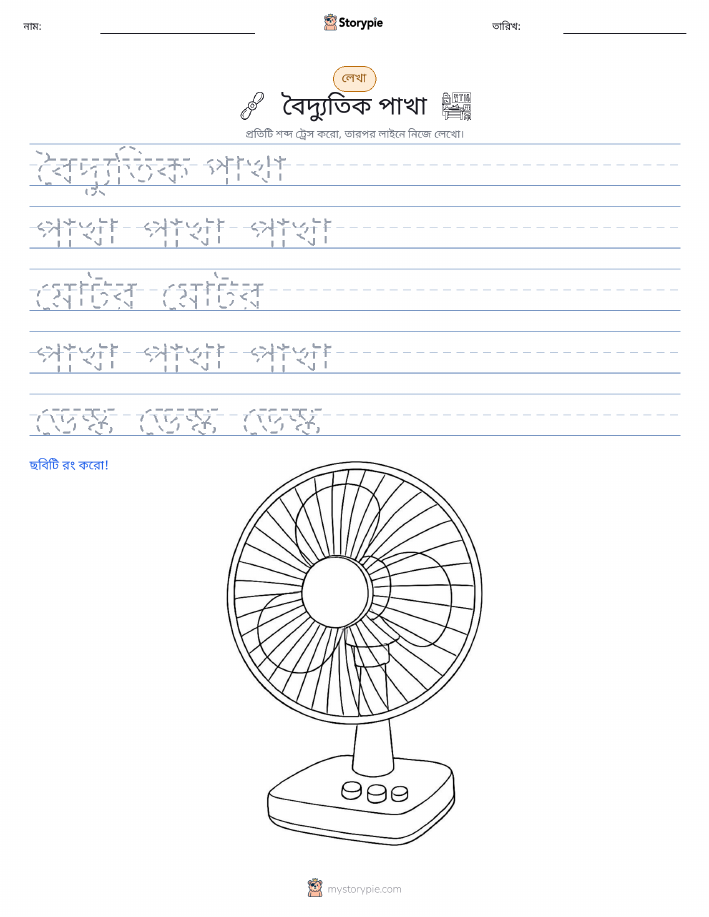 নাম:
Storypie
তারিখ:
লেখা
বৈদ্যুতিক পাখা
প্রতিটি শব্দ ট্রেস করো, তারপর লাইনে নিজে লেখো।
বৈদ্যুতিক পাখা
পাখা পাখা পাখা
মোটর মোটর
পাখা পাখা পাখা
ডেস্ক ডেস্ক ডেস্ক
ছবিটি রং করো!
mystorypie.com